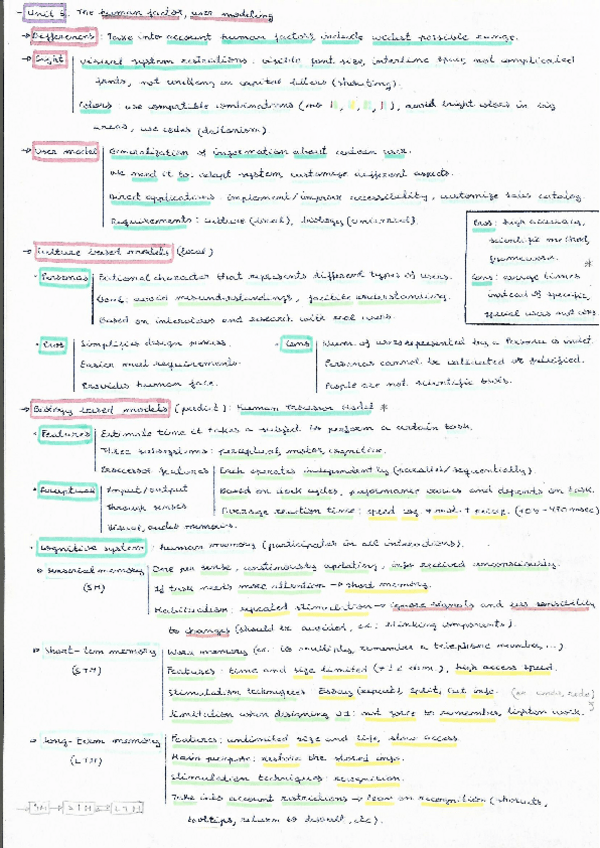 - Unit 3. The human factor, user modeling
→ Differences: Take into account human factors, include widest possible range.
→ Sight Visual system restrictions: visible font size, interline space, not complicated
fonts, not underline or capital letters (shouting).
Colors: use compatible combinations (no), avoid bright colors in big
areas, use codes (daltonism)
→ User model Generalization of information about certain user.
We need it to adapt system, customize different aspects.
Direct applications: implement/improve accessibility, customize sales catalog
Requirements: culture (local), biology (universal).
Pros: high accuracy,
scientific method,
framework. *
Cons: average times
instead of specific,
special users not
→ Culture based models (local)
· Personas Fictional character that represents different types of users.
Goal: avoid misunderstandings, facilitate understanding.
Based on interviews and research with real users.
· Pros Simplifies design process.
Easier meet requirements.
Provides human face.
· Cons of users represented by a Persona is
Personas cannot be validated or falsified.
People are not scientific basis.
→ Biology based models (predict): Human Processor Model *
· Features Estimate time it takes a subject to perform a certain task.
Three subsystems: perceptual, motor, cognitive.
Processor features Each operates independently (parallel/sequentially).
Based on clock cycles, performance varies and depends on task.
Average reaction time: speed cog. + mot. + percep.
· Perceptual Input/output
through senses
Visual, audio memories.
· Cognitive system: human memory (participates in all interactions).
→ Sensorial memory (SM) One per sense, continuously updating, info received unconsciously.
If task needs more attention → short memory.
Habituation: repeated stimulation → ignore signals and less sensibility
to changes (should be avoided, ex: blinking components).
→ Short-term memory (STM) Work memory (ex: to multiply, remember a telephone number,...)
Features: time and size limited (7 ± 2 elem.), high access speed.
Stimulation techniques: Essay (repeat), split, cut info.
Limitation when designing UI: not force to remember, lighten work.
→ Long-term memory (LTM) Features: unlimited size and life, slow access.
Main purpose: restore the stored info.
Stimulation techniques: recognition.
Take into account restrictions → focus on recognition (shortcuts,
tooltips, return to default, etc).
→ SM → STM ⇄ LTM